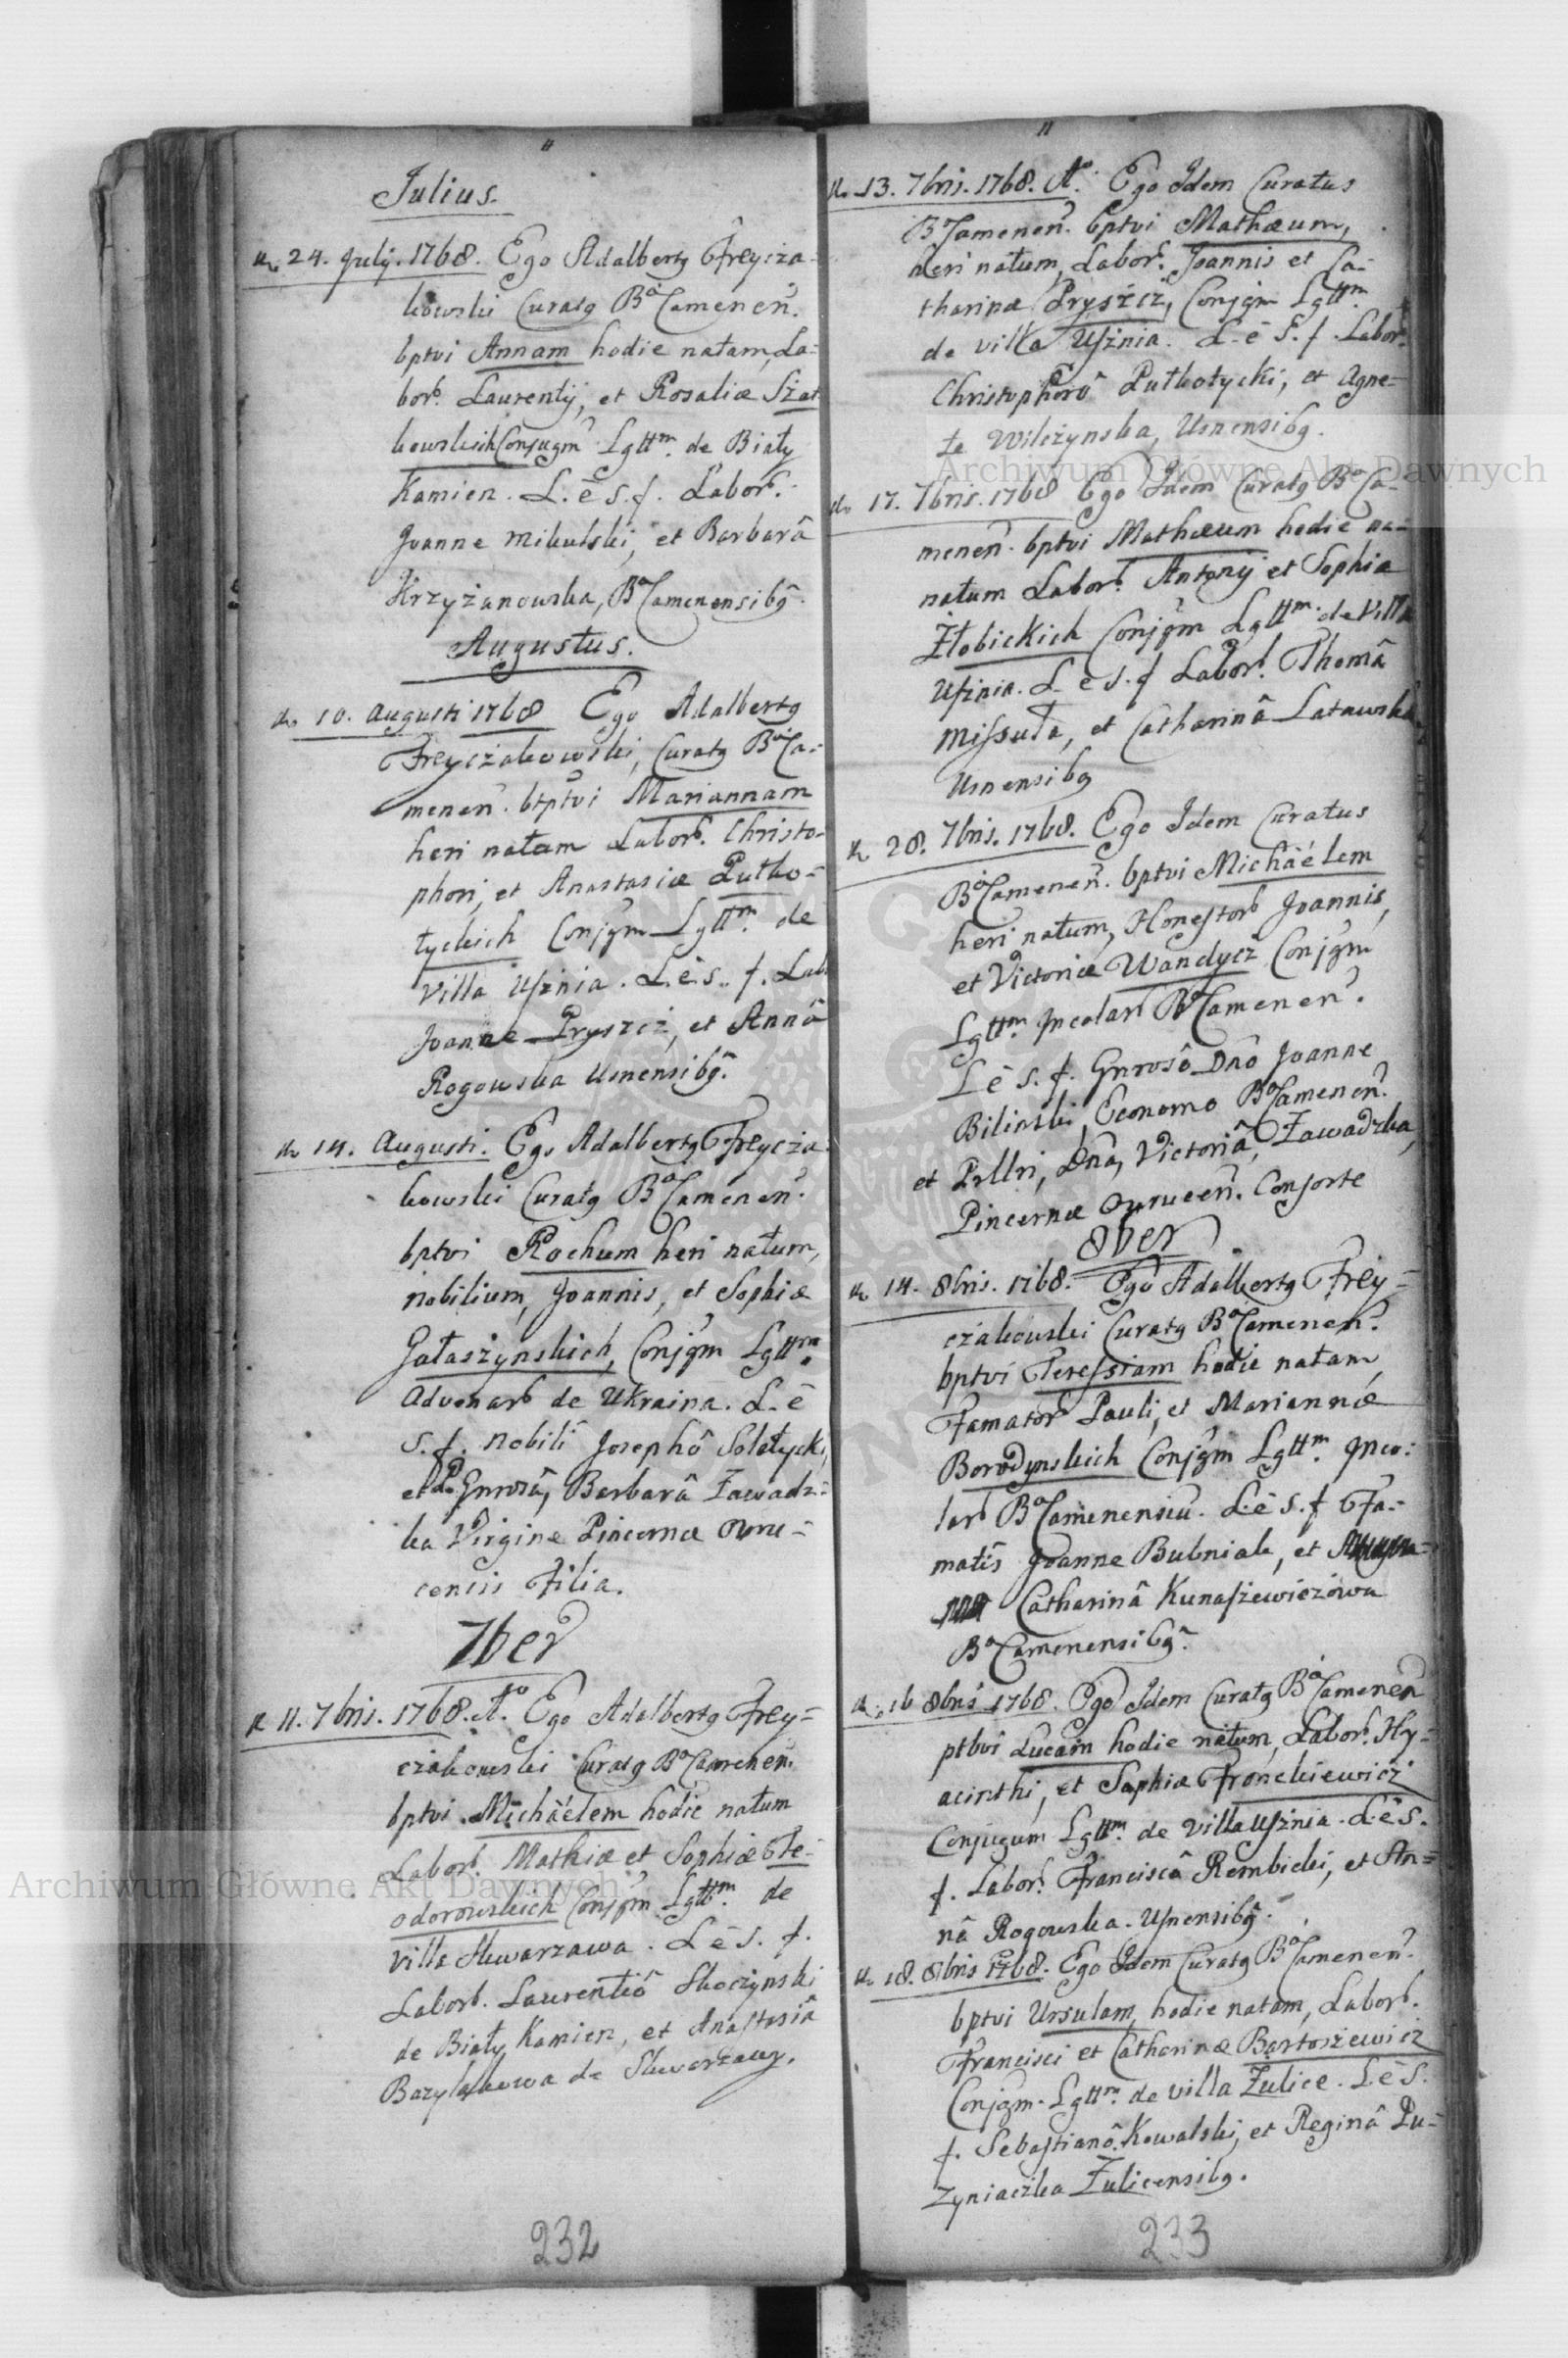 Julius.
24. Julij. 1768. Ego Adalbertq Freycza-
kowski Curatq Bo Camenen.
bptvi Annam hodie natam, La-
bor. Laurentij, et Rosaliæ Szat
kowskich Conjugm Lgttm. de Biały
Kamien. L. ê s. f. Labor.
Joanne Mikulski, et Barbarâ
Krzyżanowska, Bo Camenensibq.
Augustus.
10. Augusti 1768 Ego Adalbertq
Freyczakowski, Curatq Bo Ca-
menen. btptvi Mariannam
heri natam Labor. Christo-
phori, et Anastasiæ Putko-
tyckich Conjgm Lgttm. de
Villa Usznia. L. ê s. f. Lab
Joanne Pryszcz, et Annâ
Rogowska Usnensibq.
14. Augusti. Ego Adalbertq Freycza
kowski Curatq Bo Camenen.
bptvi Rochum heri natum,
nobilium, Joannis, et Sophiæ
Gałaszynskich, Conjgm Lgttm
Advenar de Ukraina. L. ê
s. f. Nobili Josephô Solatycki,
et Gnrosâ, Barbarâ Zawadz-
ka Virgine Pincernæ Owru-
censis Filia.
7ber
11. 7bris. 1768. Ao. Ego Adalbertq Frey=
czakowski Curatq Bo Camenen.
bptvi Michäelem hodie natum
Labor. Mathiæ et Sophiæ Fe-
odorowskich Conjgm Lgttm. de
villa Skwarzawa. L ê s. f.
Labor. Laurentiô Skoczynski
de Biały Kamien, et Anastasiâ
Bazylakowa de Skwarzawy.
232
13. 7bris. 1768. Ao. Ego Idem Curatus
Bo Camenen. bptvi Mathæum,
heri natum, Labor. Joannis et Ca-
tharinæ Pryszcz, Conjgm Lgttm
de villa Usznia. L. ê S. f. Labor.
Christophorô Putkotycki, et Agne-
te Wilczynska, Usnensibq.
17. 7bris. 1768 Ego Idem Curatq Bo Ca-
menen. bptvi Mathæum hodie na-
natum Labor. Antonij et Sophiæ
Złobickich Conjgm Lgttm. de Villa
Usznia. L ê s. f Labor. Thomâ
Missuta, et Catharinâ Latawska
Usnensibq
28. 7bris. 1768. Ego Idem Curatus
Bo Camenen. bptvi Michäélem
heri natum, Honestor Joannis,
et Victoriæ Wandycz Conjgm
Lgttm. Incolar Bo Camenen.
L ê s. f. Gnrosô Dnô Joanne
Bilinski, Economo Bo Camenen.
et Prllri, Dnâ, Victoriâ, Zawadzka,
Pincernæ Owrucen. Consorte
8ber
14. 8bris. 1768. Ego Adalbertq Frey=
czakowski Curatq Bo Camenen.
bptvi Teressiam hodie natam,
Famator Pauli, et Mariannæ
Borodynskich Conjgm Lgttm. Inco:
lar Bo Camenensiu. L. ê s. f Fa-
matis Joanne Bubniak, et
Catharinâ Kunaszewiczowa
Bo Camenensibq.
16 8bris 1768. Ego Idem Curatq Bo Camenen
ptbvi Lucam hodie natum, Labor. Hy=
acinthi, et Sophiæ Fronckiewicz
Conjugum Lgttm. de villa Usznia. L ê S.
f. Labor. Franciscô Rembicki, et An=
nâ Rogowska. Usnensibq.
18. 8bris 1768. Ego Idem Curatq Bo Camenen.
bptvi Ursulam, hodie natam, Labor.
Francisci et Catharinæ Bartoszewicz
Conjgm. Lgttm. de villa Zulice. L. ê S.
f. Sebastianô Kowalski, et Reginâ Pu-
zyniaczka Zulicensibq.
233
Archiwum Główne Akt Dawnych
Archiwum Główne Akt Dawnych